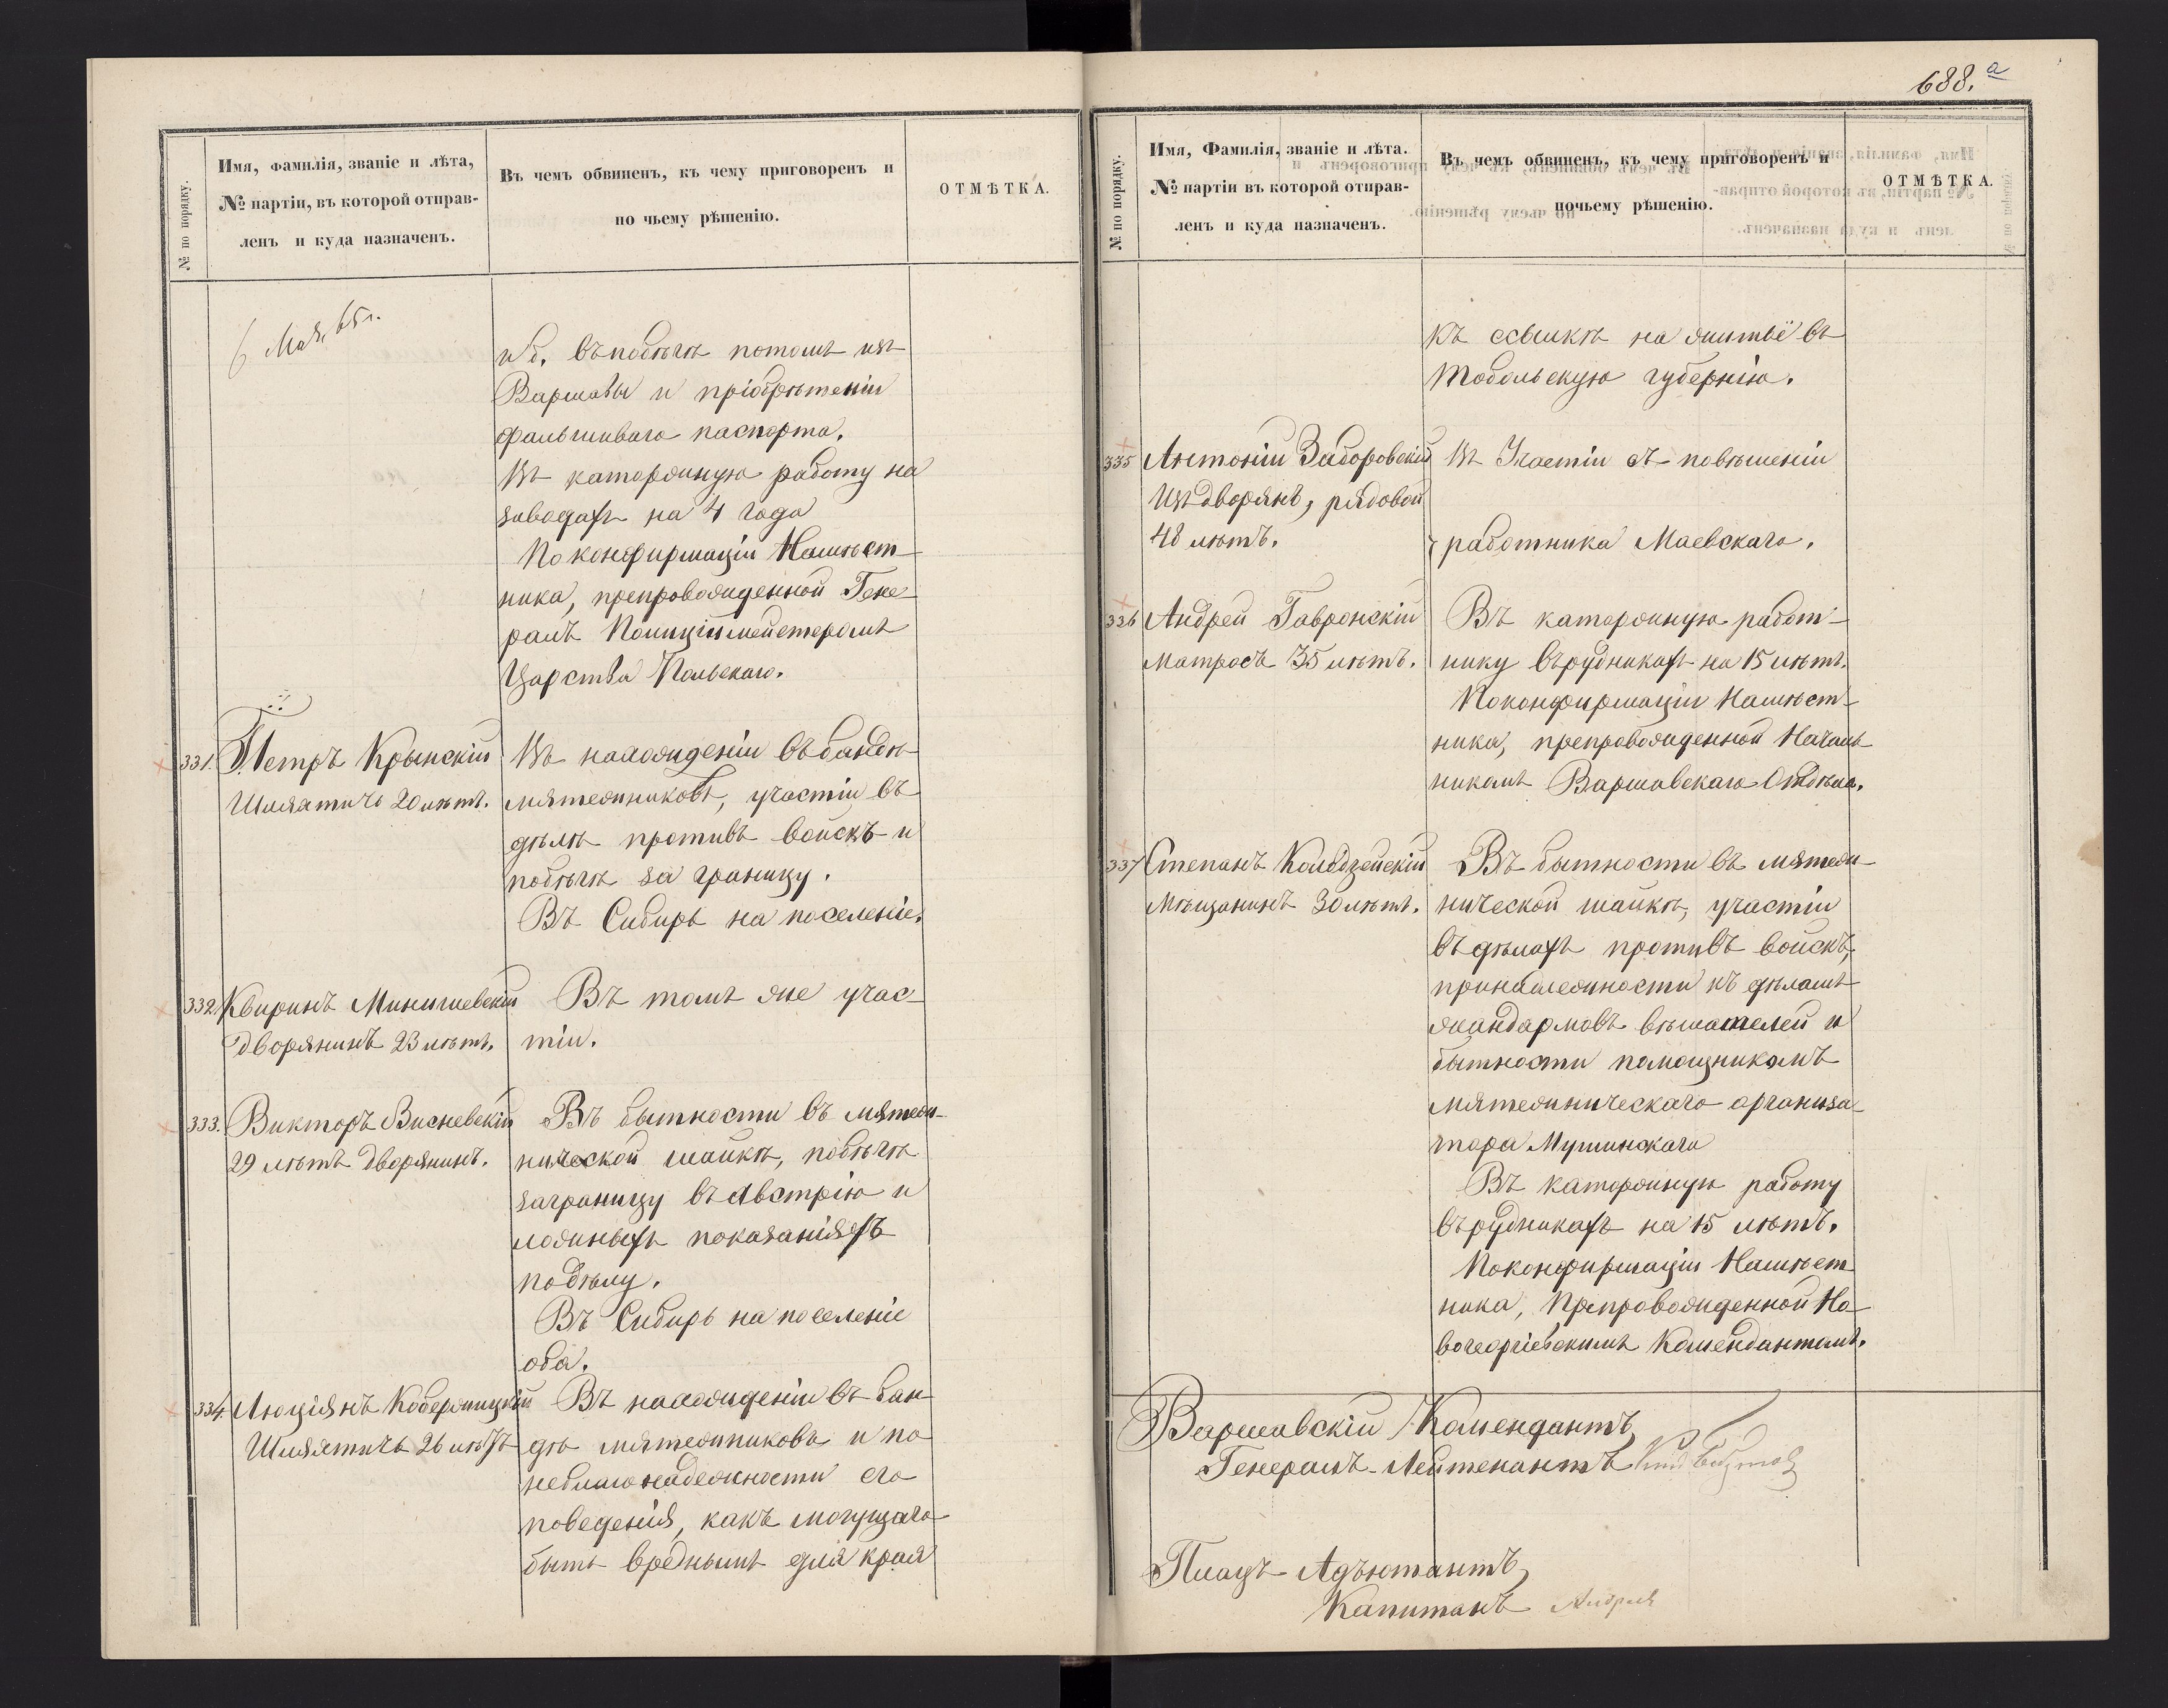 688.a
№ по порядку.
Имя, фамилія, званіе и лѣта,
№ партіи, въ которой отправ-
ленъ и куда назначенъ.
Въ чемъ обвиненъ, къ чему приговоренъ и
по чьему рѣшенію.
ОТМѢТКА.
6 Мая, 65 г.
побѣгѣ потомъ изъ
Варшавы и пріобрѣтеніи
фальшиваго паспорта.
Въ каторжную работу на
заводахъ на 4 года
По конфирмаціи Намѣст-
ника, препровожденной Гене-
ралъ Полиціймейстеромъ
Царства Польскаго.
331. Петръ Крынскій
Шляхтичъ 20 лѣтъ.
Въ нахожденіи въ бандѣ
мятежниковъ, участіи въ
дѣлѣ противъ войскъ и
побѣгѣ за границу.
Въ Сибирь на поселеніе.
332. Квиринъ Минишевскій
дворянинъ 23 лѣтъ.
Въ томъ же учас-
тіи.
333. Викторъ Висневскій
29 лѣтъ дворянинъ.
Въ бытности въ мятеж-
нической шайкѣ, побѣгѣ
заграницу въ Австрію и
ложныхъ показаніяхъ
по дѣлу.
Въ Сибирь на поселеніе
оба.
334. Люціянъ Кобержицкій
Шляхтичъ 26 лѣтъ
Въ нахожденіи въ бан-
дѣ мятежниковъ и по
неблагонадежности его
поведенія, какъ могущаго
быть вреднымъ для края
№ по порядку.
Имя, Фамилія, званіе и лѣта.
№ партіи въ которой отправ-
ленъ и куда назначенъ.
Въ чемъ обвиненъ, къ чему приговоренъ и
почьему рѣшенію.
ОТМѢТКА.
Къ ссылкѣ на житьё въ
Тобольскую губернію.
335 Антоній Заборовскій
Изъ дворянъ, рядовой
48 лѣтъ.
Въ Участіи въ повѣшеніи
работника Маевскаго.
336 Андрей Гавронскій
Матросъ 35 лѣтъ.
Въ каторжную работ-
нику въ рудникахъ на 15 лѣтъ.
По конфирмаціи Намѣст-
ника, препровожденной Началь
никомъ Варшавскаго Отдѣла.
337 Степанъ Колодзейскій
Мѣщанинъ 30 лѣтъ.
Въ бытности въ мятеж-
нической шайкѣ, участіи
въ дѣлахъ противъ войскъ,
принадлежности къ дѣламъ
жандармовъ вѣшателей и
бытности помощникомъ
мятежническаго организа-
тора Мушинскаго
Въ каторжную работу
въ рудникахъ на 15 лѣтъ.
По конфирмаціи Намѣст-
ника, Препровожденной Но-
вогеоргіевскимъ Комендантомъ.
Варшавскій Комендантъ,
Генералъ-Лейтенантъ
Плацъ-Адъютантъ,
Капитанъ